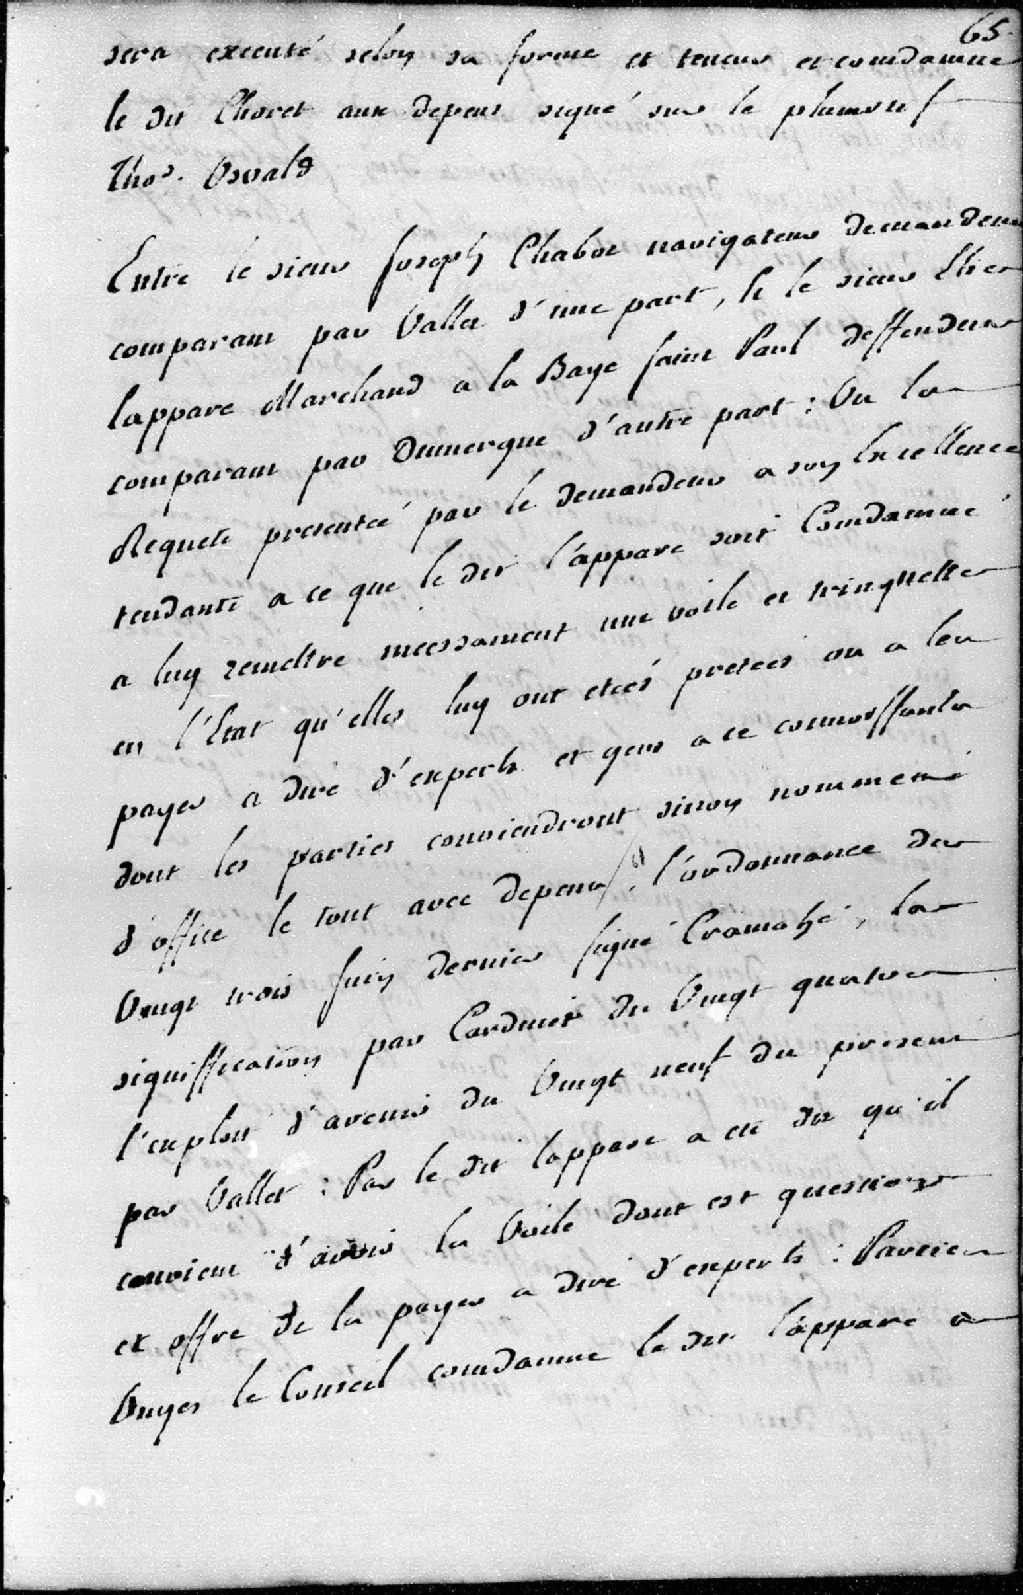 65.
sera executé selon sa forme et teneur et comdamne
le dit Choret aux depens signé sur le plumitif
Thos. Osvald
Entre le sieur Joseph Chabot navigateur demandeur
comparant par Vallet d'une part, & le sieur Elie
lappare Marchand a la Baye saint Paul deffendeur
comparant par Dumergue d'autre part : Vu la
Requete presenteé par le demandeur a son Excellence
tendante a ce que le dit l'appare soit Comdamné
a luy remettre incessament une voile et trinquette
en l'Etat qu'elles luy ont eteés pretées ou a les
payer a dire d'experts et gens a ce connoissants
dont les parties conviendront sinon nommés
d'office le tout avec depens, l'ordonnance du
Vingt trois Juin dernier signé Cramahé, la
signiffication par Cardinet du Vingt quatre
l'exploit d'avenir du Vingt neuf du present
par Vallet : Par le dit lappare a eté dit qu'il
convient d'avoir la Voile dont est question
et offre de la payer a dire d'experts : Parties
Ouyes le Conseil comdamne le dit lappare a